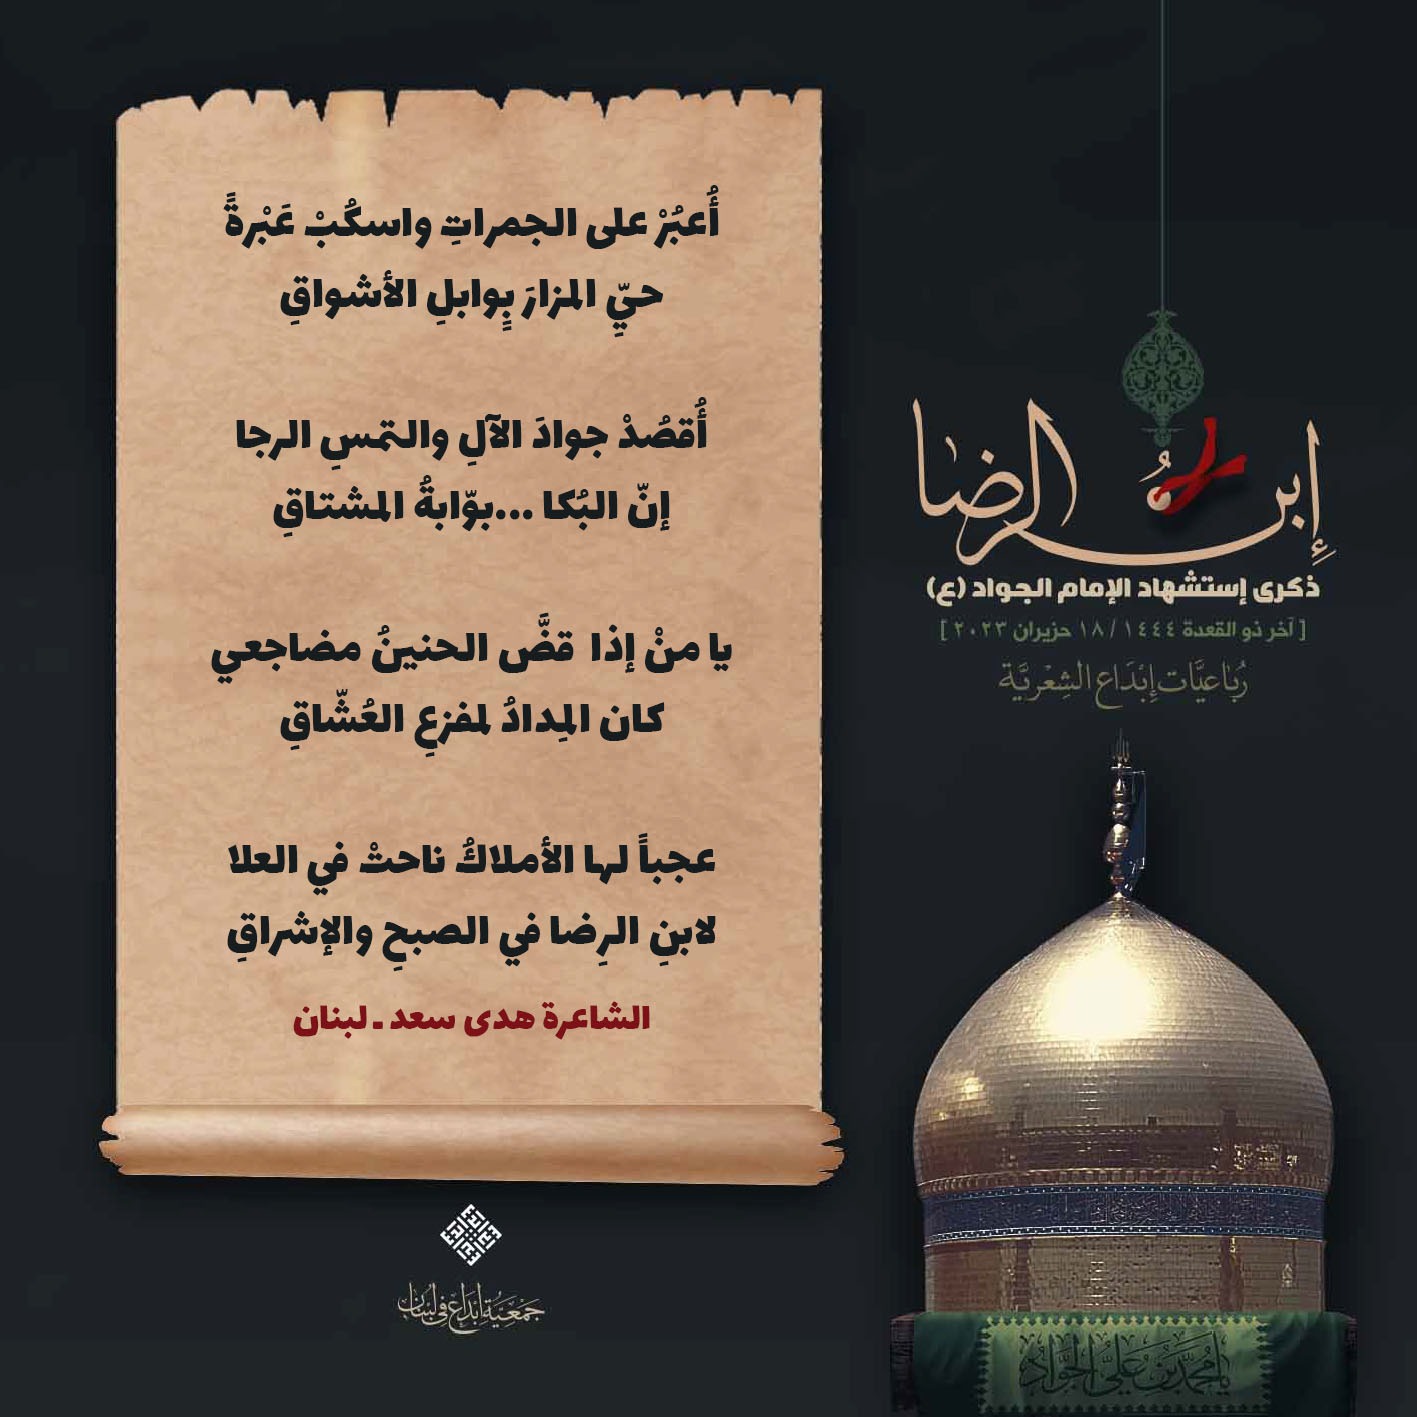 أُعبُرْ على الجمراتِ واسكُبْ عَبْرةً
حيِّ المزارَ بِوابلِ الأشواقِ
أُقصُدْ جوادَ الآلِ والتمسِ الرجا
إنّ البُكا ...بوّابةُ المشتاقِ
يا منْ إذا قضَّ الحنينُ مضاجعي
كان المِدادُ لمفزعِ العُشّاقِ
عجباً لها الأملاكُ ناحتْ في العلا
لابنِ الرِضا في الصبحِ والإشراقِ
الشاعرة هدى سعد ـ لبنان
إبن الرضا
ذكرى إستشهاد الإمام الجواد (ع)
[ آخر ذو القعدة ١٤٤٤ / ١٨ حزيران ٢٠٢٣ ]
رُبَاعيَّات إِبْدَاع الشِعْريَّة
جَمْعِيَّة إبْدَاع في لبنان
يا مُحمَّد بن عَليّ الجَوَاد